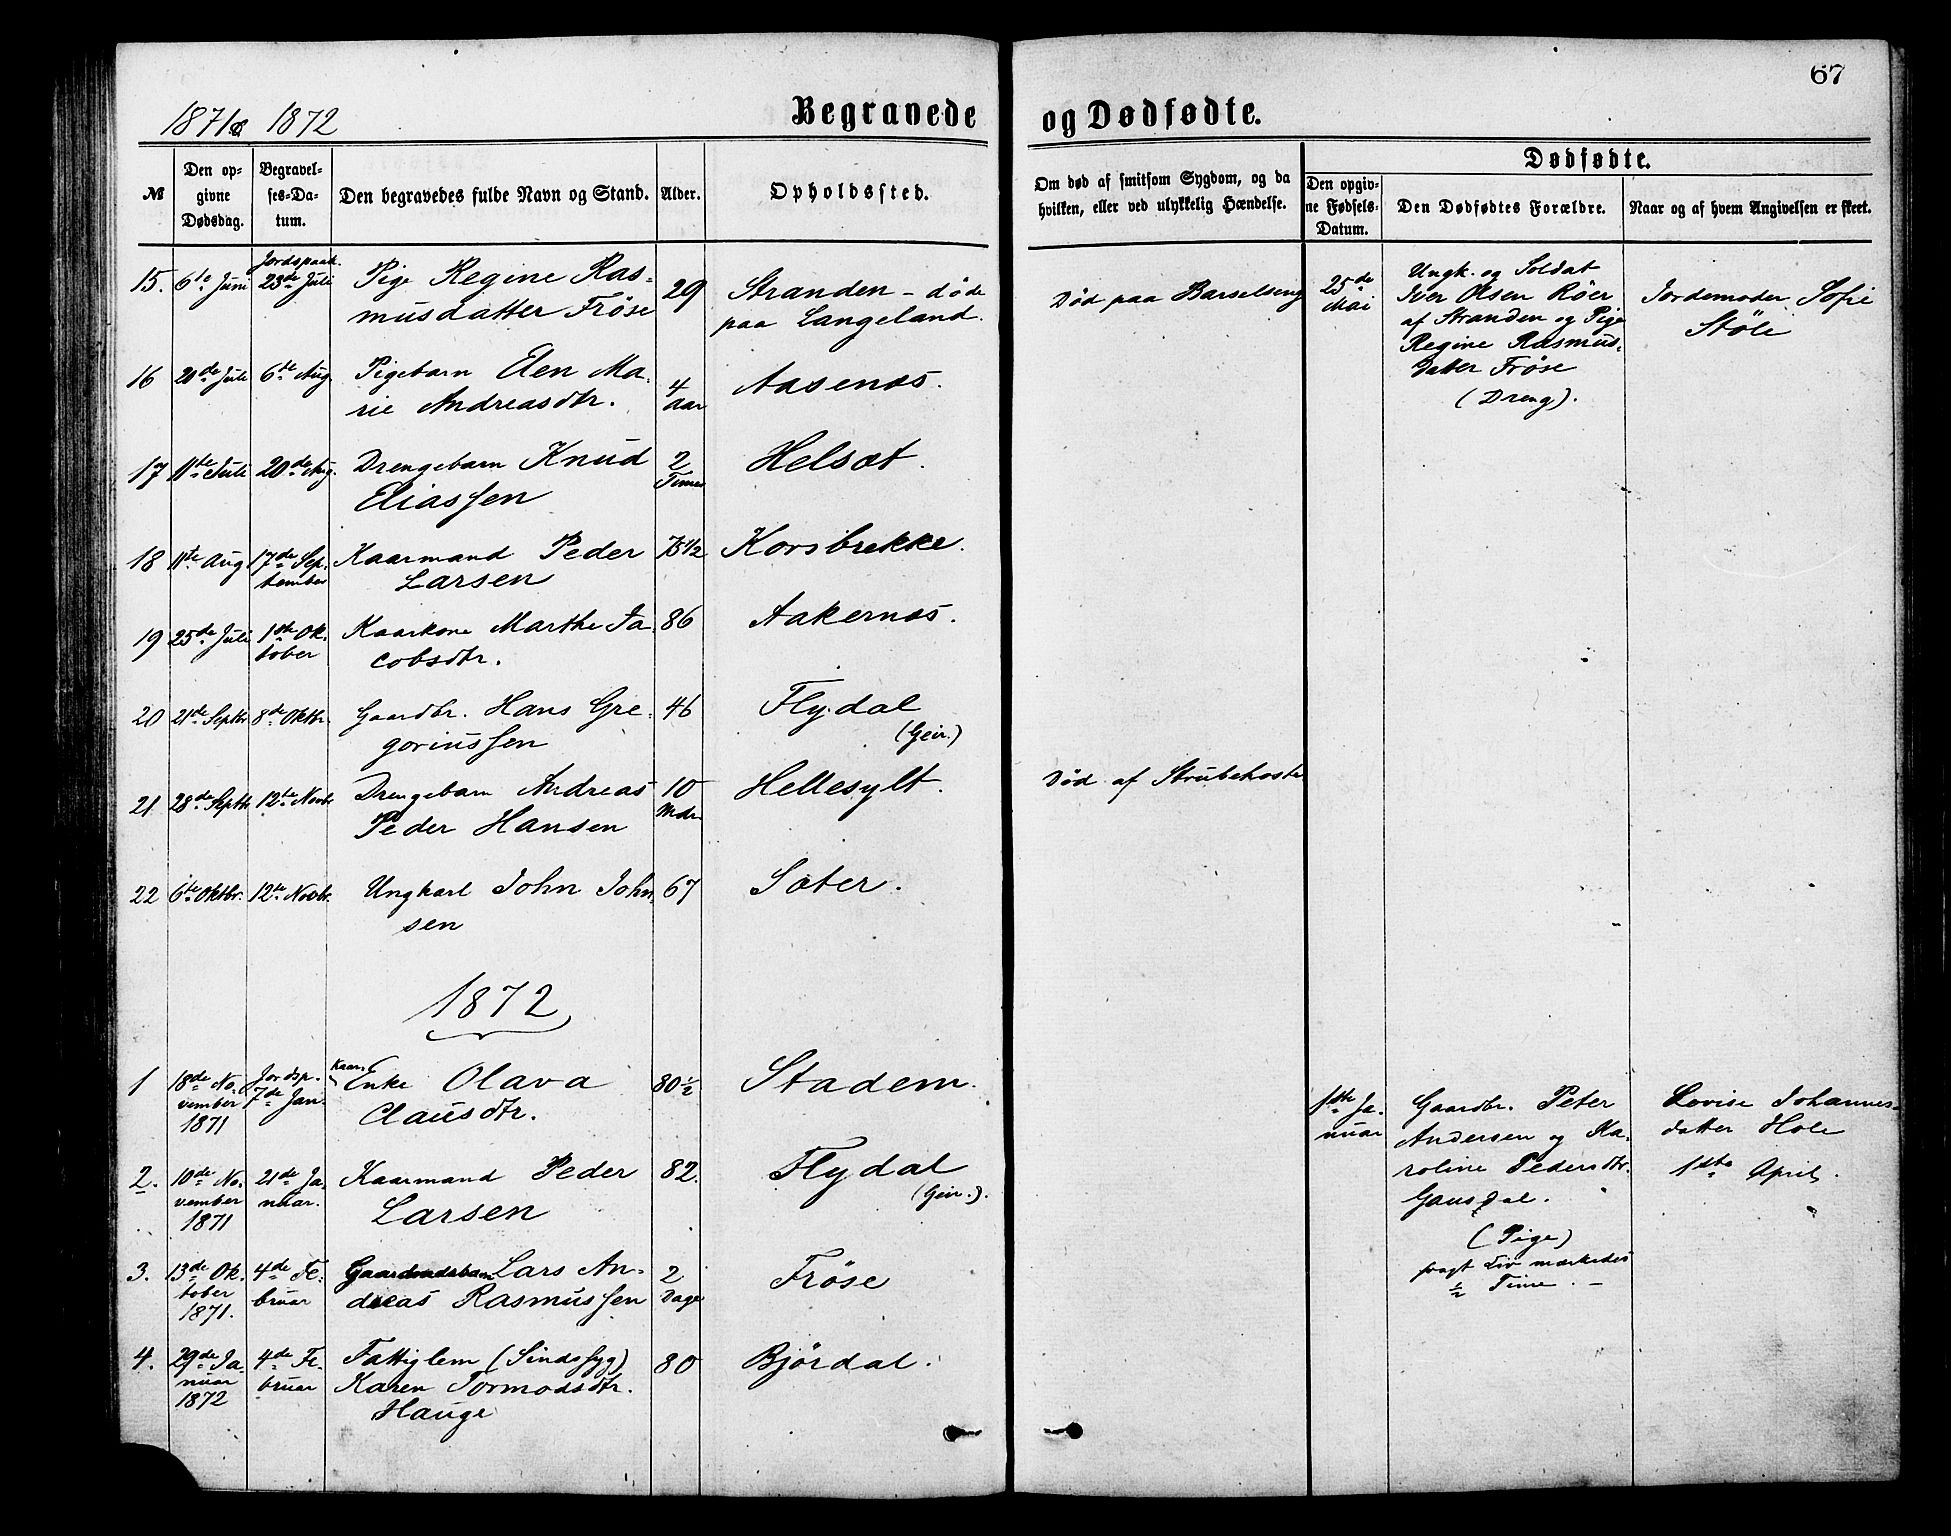 67
1871 & 1872
Begravede og Dødfødte.
№
Den opgivne Dødsdag.
Begravelses-Datum.
Den begravedes fulde Navn og Stand.
Alder.
Opholdssted.
Om død af smitsom Sygdom, og da hvilken, eller ved ulykkelig Hændelse.
Dødfødte.
Den opgivne Fødsels-Datum.
Den Dødfødtes Forældre.
Naar og af hvem Angivelsen er skeet.
15. 6te Juni Jordspaak. 23de Juli Pige Regine Ras-
musdatter Fröse 29 Stranden - døde
paa Langeland.
Død paa Barselseng
25de Mai
Ungk. og Soldat
Iver Olsen Röer
af Stranden og Pige
Regine Rasmus-
datter Fröse
(Dreng).
Jordemoder Sofie
Stöle
16 20de Juli 6te Aug. Pigebarn Elen Ma-
rie Andreasdtr. 4 Aar Aasenæs.
17 11te Juli 20de Aug. Drengebarn Knud
Eliassen 2 Timer Helsæt.
18 11te Aug 17de September Kaarmand Peder
Larsen 75 1/2 Korsbrekke.
19 25de Juli 1ste Oktober Kaarkone Marthe Ja-
cobsdtr. 86 Aakernæs.
20 21de Septbr 8de Oktbr. Gaardbr. Hans Gre-
goriussen 46 Flydal
(Geir.)
21 28de Septbr 12te Novbr. Drengebarn Andreas
Peder Hansen 10 Mdr Hellesylt.
Død af Strubehoste
22 6te Oktbr. 12te Novbr. Ungkarl John John-
sen 67 Sæter.
1872
1 18de November 1871 Jordsp. 7de Jan. Kaar-
Enke Olava
Clausdtr. 80 1/2 Stadem.
1ste Januar
Gaardbr. Peter
Andersen og Ka-
roline Pedersdtr.
Gausdal.
(Pige)
svagt Liv mærkedes
1/2 Time. -
Lovise Johannes-
datter Hole
1ste April.
2. 10de November 1871 21de Januar. Kaarmand Peder
Larsen 82. Flydal
(Geir.).
3. 13de Oktober 1871. 4de Februar Lars An-
dreas Rasmussen 2 Dage Fröse
4. 29de Januar 1872 4de Februar Fattiglem (Sindssyg)
Karen Tormodsdtr.
Hauge 80 Björdal.